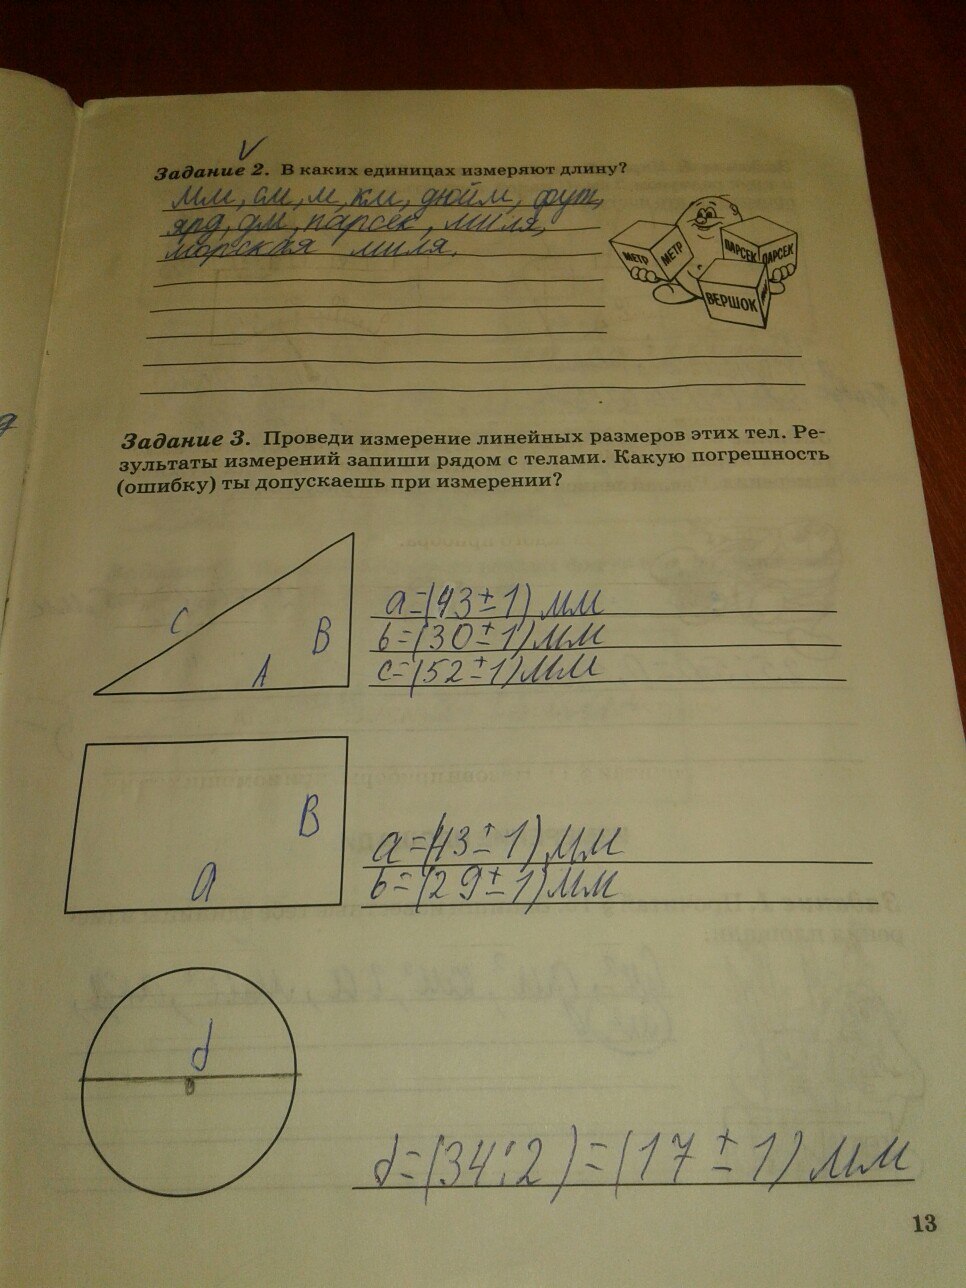 Задание 2. В каких единицах измеряют длину?
мм, см, м, км, дюйм, фут,
ярд, дм, парсек, миля,
морская миля.
МЕТР МЕТР ПАРСЕК ПАРСЕК
ВЕРШОК
Задание 3. Проведи измерение линейных размеров этих тел. Ре-
зультаты измерений запиши рядом с телами. Какую погрешность
(ошибку) ты допускаешь при измерении?
C B A
a=(43±1) мм
b=(30±1) мм
c=(52±1) мм
B
a
a=(43±1) мм
b=(29±1) мм
d
d=(34:2)=(17±1) мм
13